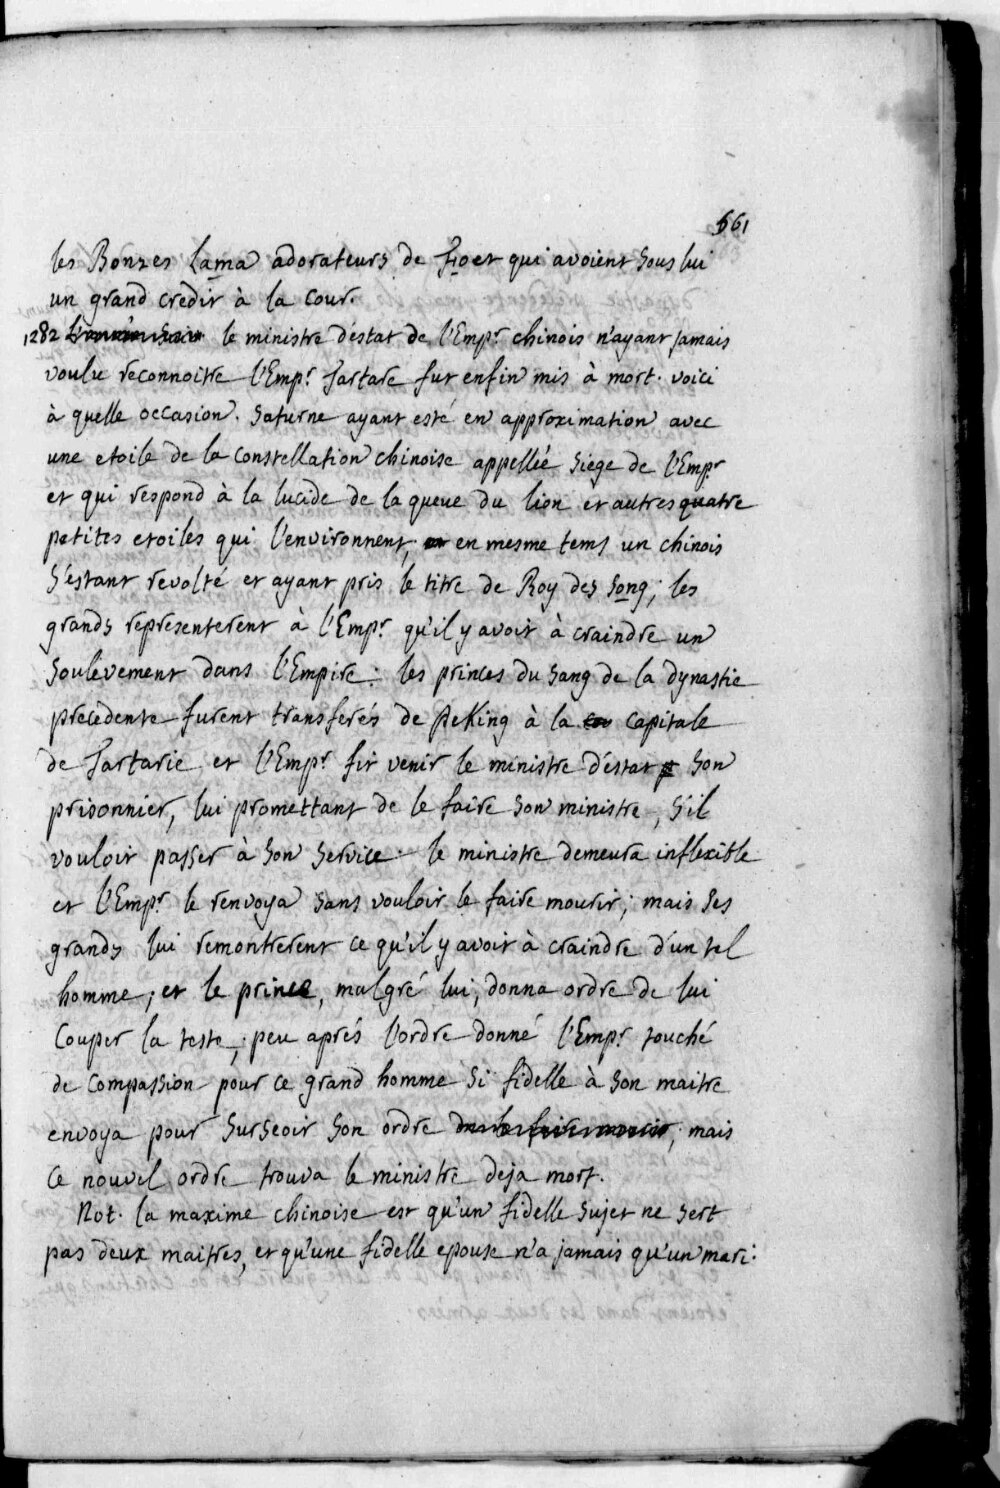 661
les Bonzes Lama adorateurs de Foet qui avoient sous lui
un grand credit à la cour.
1282 le ministre d'estat de l'Emp.r chinois n'ayant jamais
voulu reconnoitre l'Emp.r Tartare fut enfin mis à mort. voici
à quelle occasion. Saturne ayant esté en approximation avec
une etoile de la constellation chinoise appellée siege de l'Emp.r
et qui respond à la lucide de la queue du lion et autres quatre
petites etoiles qui l'environnent, en mesme tems un chinois
s'estant revolté et ayant pris le titre de Roy des Song; les
grands representerent à l'Emp.r qu'il y avoit à craindre un
soulevement dans l'Empire: les princes du sang de la dynastie
precedente furent transferés de Peking à la capitale
de Tartarie et l'Emp.r fit venir le ministre d'estat son
prisonnier, lui promettant de le faire son ministre, s'il
vouloit passer à son service. le ministre demeura inflexible
et l'Emp.r le renvoya sans vouloir le faire mourir; mais ses
grands lui remontrerent ce qu'il y avoit à craindre d'un tel
homme; et le prince, malgré lui, donna ordre de lui
couper la teste; peu aprés l'ordre donné l'Emp.r touché
de compassion pour ce grand homme si fidelle à son maitre
envoya pour surseoir son ordre de le faire mourir; mais
ce nouvel ordre trouva le ministre deja mort.
Not. la maxime chinoise est qu'un fidelle sujet ne sert
pas deux maitres, et qu'une fidelle epouse n'a jamais qu'un mari.